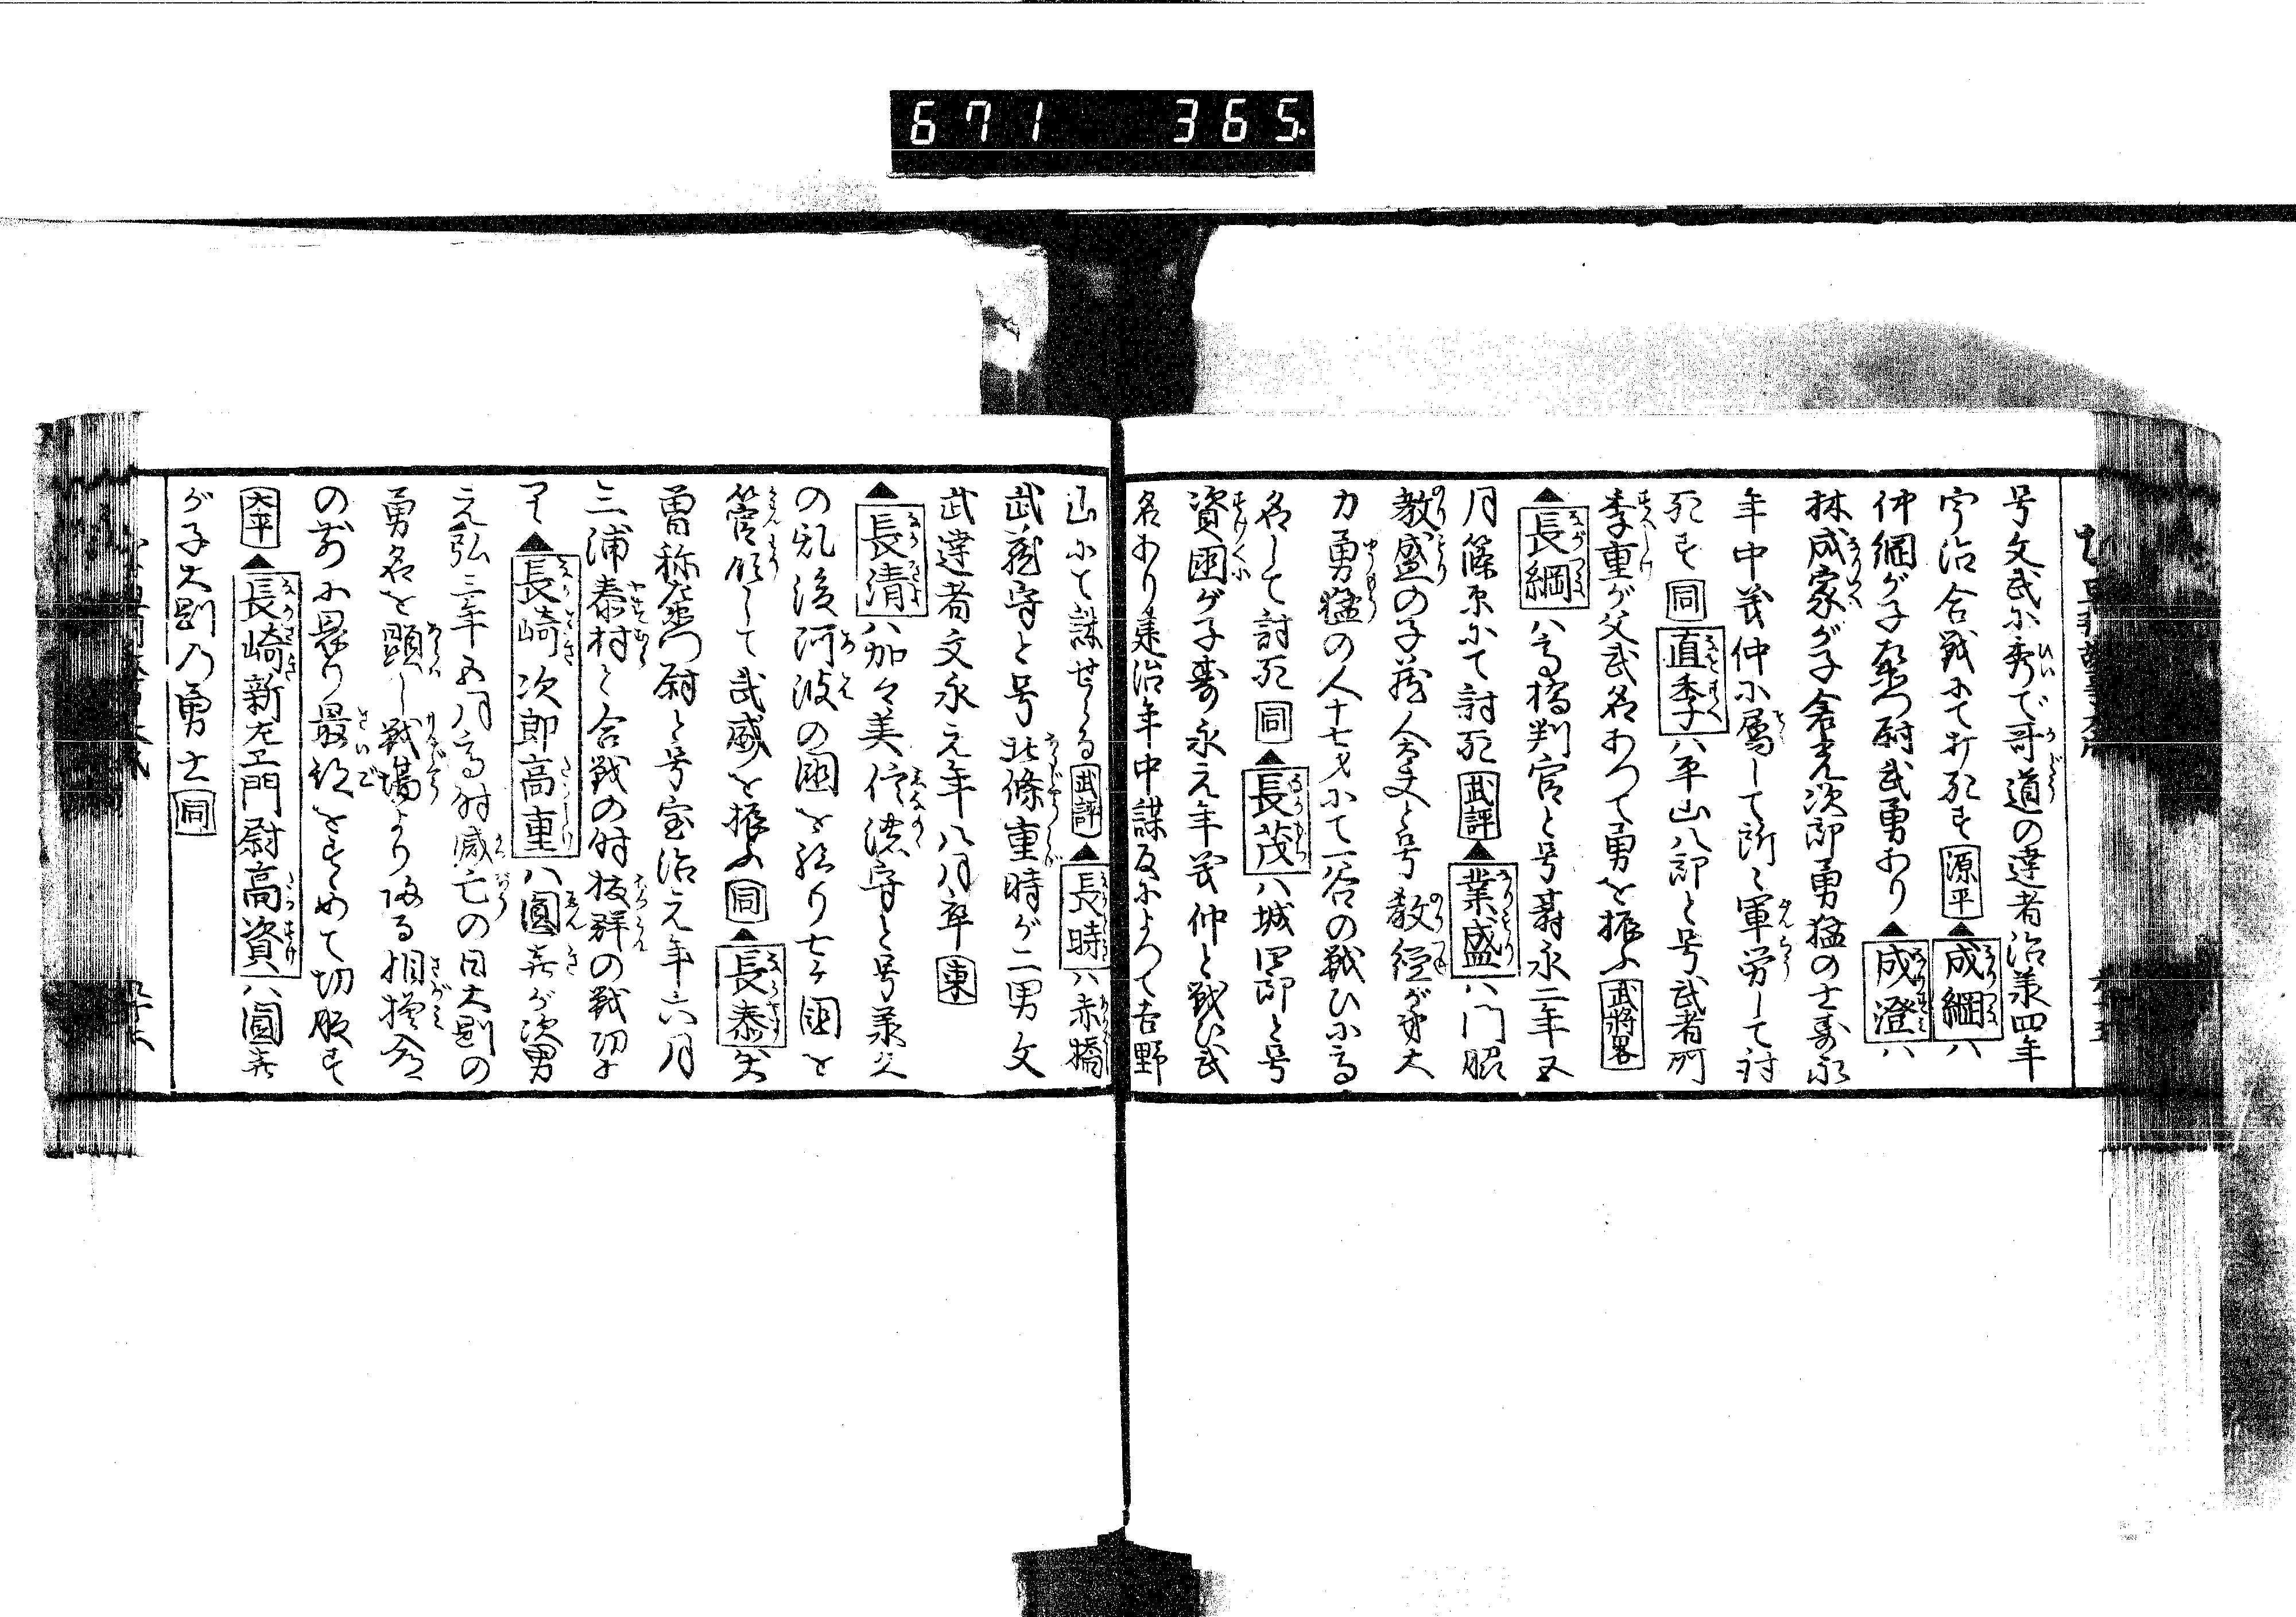 671 365
号文武に秀で哥道の達者治承四年
宇治合戦にて打死す 源平 ▲成綱ハ
仲綱が子左衛門尉武勇あり ▲成澄ハ
林成家が子倉光次郎勇猛の士寿永
年中義仲に属して所々軍労して討
死す 同 直季ハ平山八郎と号武者所
季重が父武名あつて勇を振ふ 武将畧
▲長綱ハ高橋判官と号寿永二年五
月篠原にて討死 武評 ▲業盛ハ門脇
教盛の子蔵人大夫と号教経が弟大
力勇猛の人十七才にて一谷の戦ひに高
名して討死 同 ▲長茂ハ城四郎と号
資国が子寿永元年義仲と戦ひ武
名あり建治年中謀反によつて吉野
山にて誅せらる 武評 ▲長時ハ赤橋
武蔵守と号北條重時が二男文
武達者文永元年八月卒 東
▲長清ハ加々美信濃守と号承久
の乱後阿波の国を給り七ケ国を
管領して武威を振ふ 同 ▲長泰
曽称左衛門尉と号宝治元年六月
三浦泰村と合戦の时抜群の戦功
▲長崎次郎高重ハ圓喜が次男
元弘三年五月高时滅亡の日大剛の
勇名を顕し戦場より帰る相模入道
の前に畏り最期をすゝめて切腹す
太平 ▲長崎新左エ門尉高資ハ圓喜
が子大剛乃勇士 同